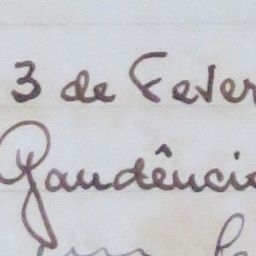 3 de Fever
Gaudênci